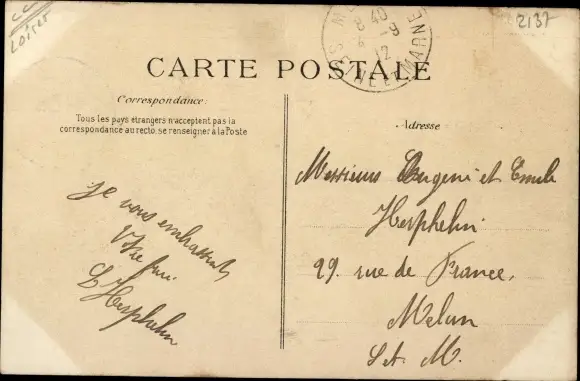 CC
Loiret
2137
8 40
6 - 9
12
SEINE ET MARNE
CARTE POSTALE
Correspondance:
Tous les pays étrangers n'acceptent pas la
correspondance au recto, se renseigner à la Poste
Adresse
Je vous embrasse
Votre
L Hesphelin
Messieurs Eugene et Emile
Hesphelin
29. rue de France.
Melun
S et M.